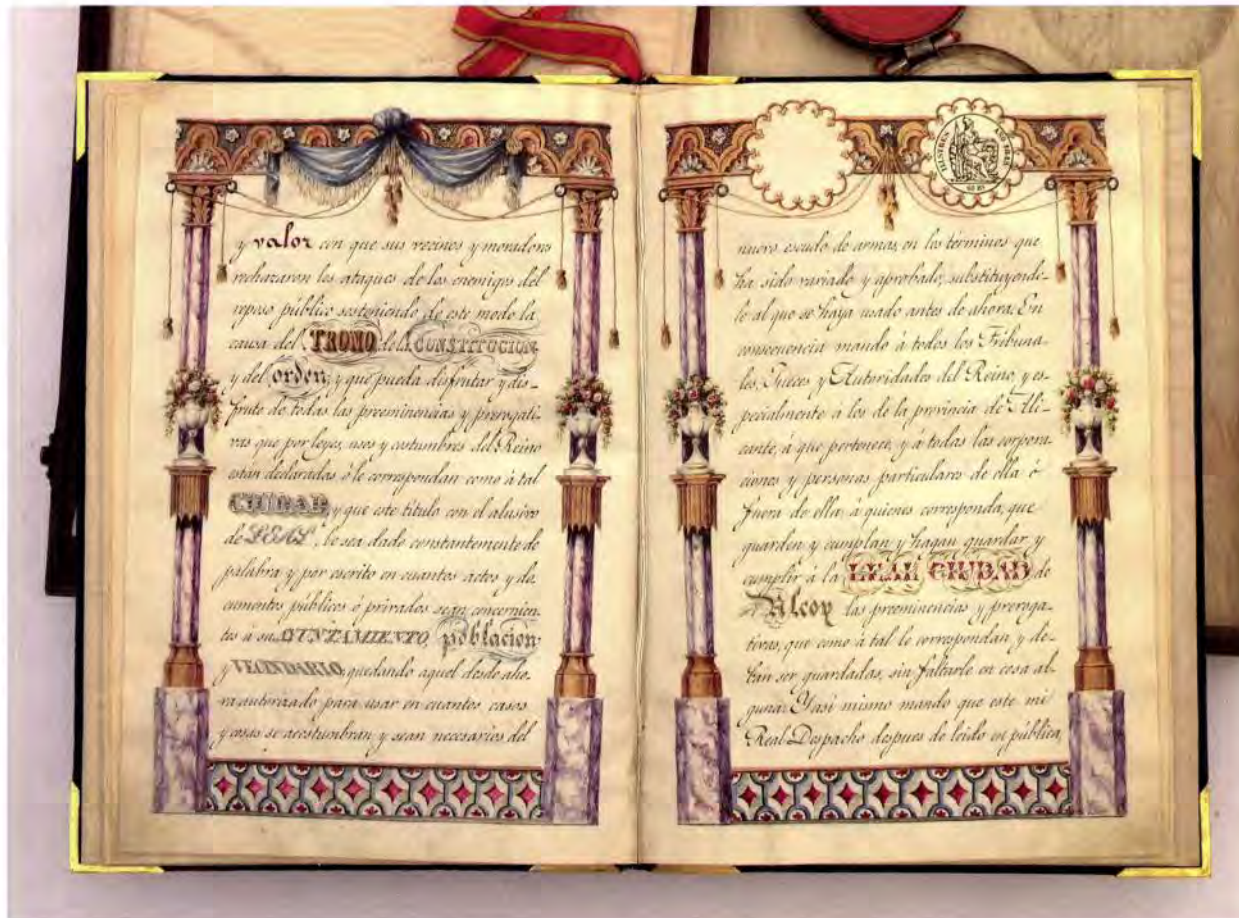 y valor con que sus vecinos y moradores
rechazaron los ataques de los enemigos del
reposo público sosteniendo de este modo la
causa del TRONO de la CONSTITUCION
y del orden, y que pueda disfrutar y dis-
frute de todas las preeminencias y prerogati-
vas que por leyes, usos y costumbres del Reino
están declaradas ó le correspondan como á tal
CIUDAD, y que este título con el alusivo
de LEAL, le sea dado constantemente de
palabra y por escrito en cuantos actos y do-
cumentos públicos ó privados sean concernien-
tes á su AYUNTAMIENTO, poblacion
y VECINDARIO, quedando aquel desde aho-
ra autorizado para usar en cuantos casos
y cosas se acostumbran y sean necesarios del
nuevo escudo de armas, en los términos que
ha sido variado y aprobado, substituyendo-
le al que se haya usado antes de ahora. En
consecuencia mando á todos los Tribuna-
les, Jueces y Autoridades del Reino, y es-
pecialmente á los de la provincia de Ali-
cante, á que pertenece, y á todas las corpora-
ciones y personas particulares de ella ó
fuera de ella, á quienes corresponda, que
guarden y cumplan y hagan guardar y
cumplir á la LEAL CIUDAD de
Alcoy las preeminencias y preroga-
tivas, que como á tal le correspondan y de-
ban ser guardadas, sin faltarle en cosa al-
guna. Y asi mismo mando que este mi
Real Despacho despues de leido en pública